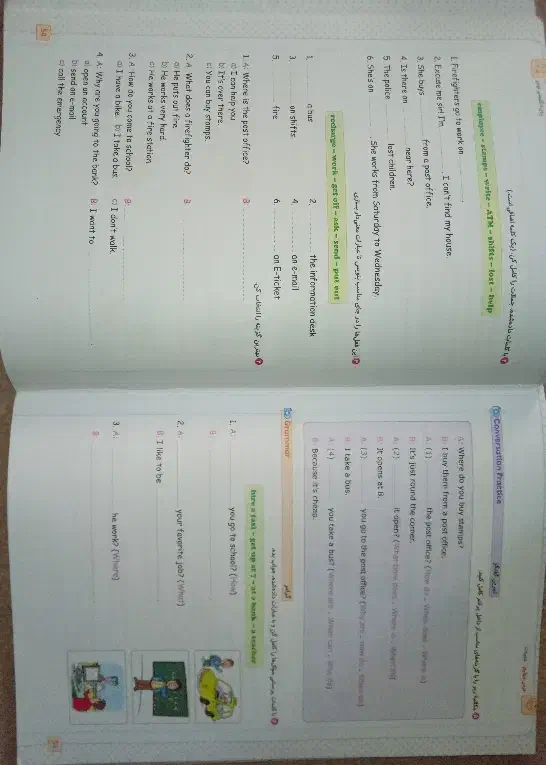 با کلمات داده‌شده، جملات را کامل کن. (یک کلمه اضافی است.)
employee - stamps - write - ATM - shifts - lost - help
1. Firefighters go to work on .
2. Excuse me sir! I'm . I can't find my house.
3. She buys from a post office.
4. Is there an near here?
5. The police lost children.
6. She's an . She works from Saturday to Wednesday.
recharge - work - get off - ask - send - put out
1. a bus
2. the information desk
3. on shifts
4. an e-mail
5. fire
6. an E-ticket
بهترین گزینه را انتخاب کن.
1. A: Where is the post office? B:
a) I can help you.
b) It's over there.
c) You can buy stamps.
2. A: What does a firefighter do? B:
a) He puts out fire.
b) He works very hard.
c) He works at a fire station.
3. A: How do you come to school? B:
a) I have a bike. b) I take a bus. c) I don't walk.
4. A: Why are you going to the bank? B: I want to .
a) open an account
b) send an e-mail
c) call the emergency
Conversation Practice
A: Where do you buy stamps?
B: I buy them from a post office.
A: (1) the post office? (How do - When does - Where is)
B: It's just round the corner.
A: (2) it open?
B: It opens at 8.
A: (3) you go to the post office?
B: I take a bus.
A: (4) you take a bus?
B: Because it's cheap.
Grammar گرامر
hire a taxi - get up at 7 - at a bank - a teacher
1. A: you go to school? (How)
B:
2. A: your favorite job? (What)
B: I like to be
3. A: he work? (Where)
B: